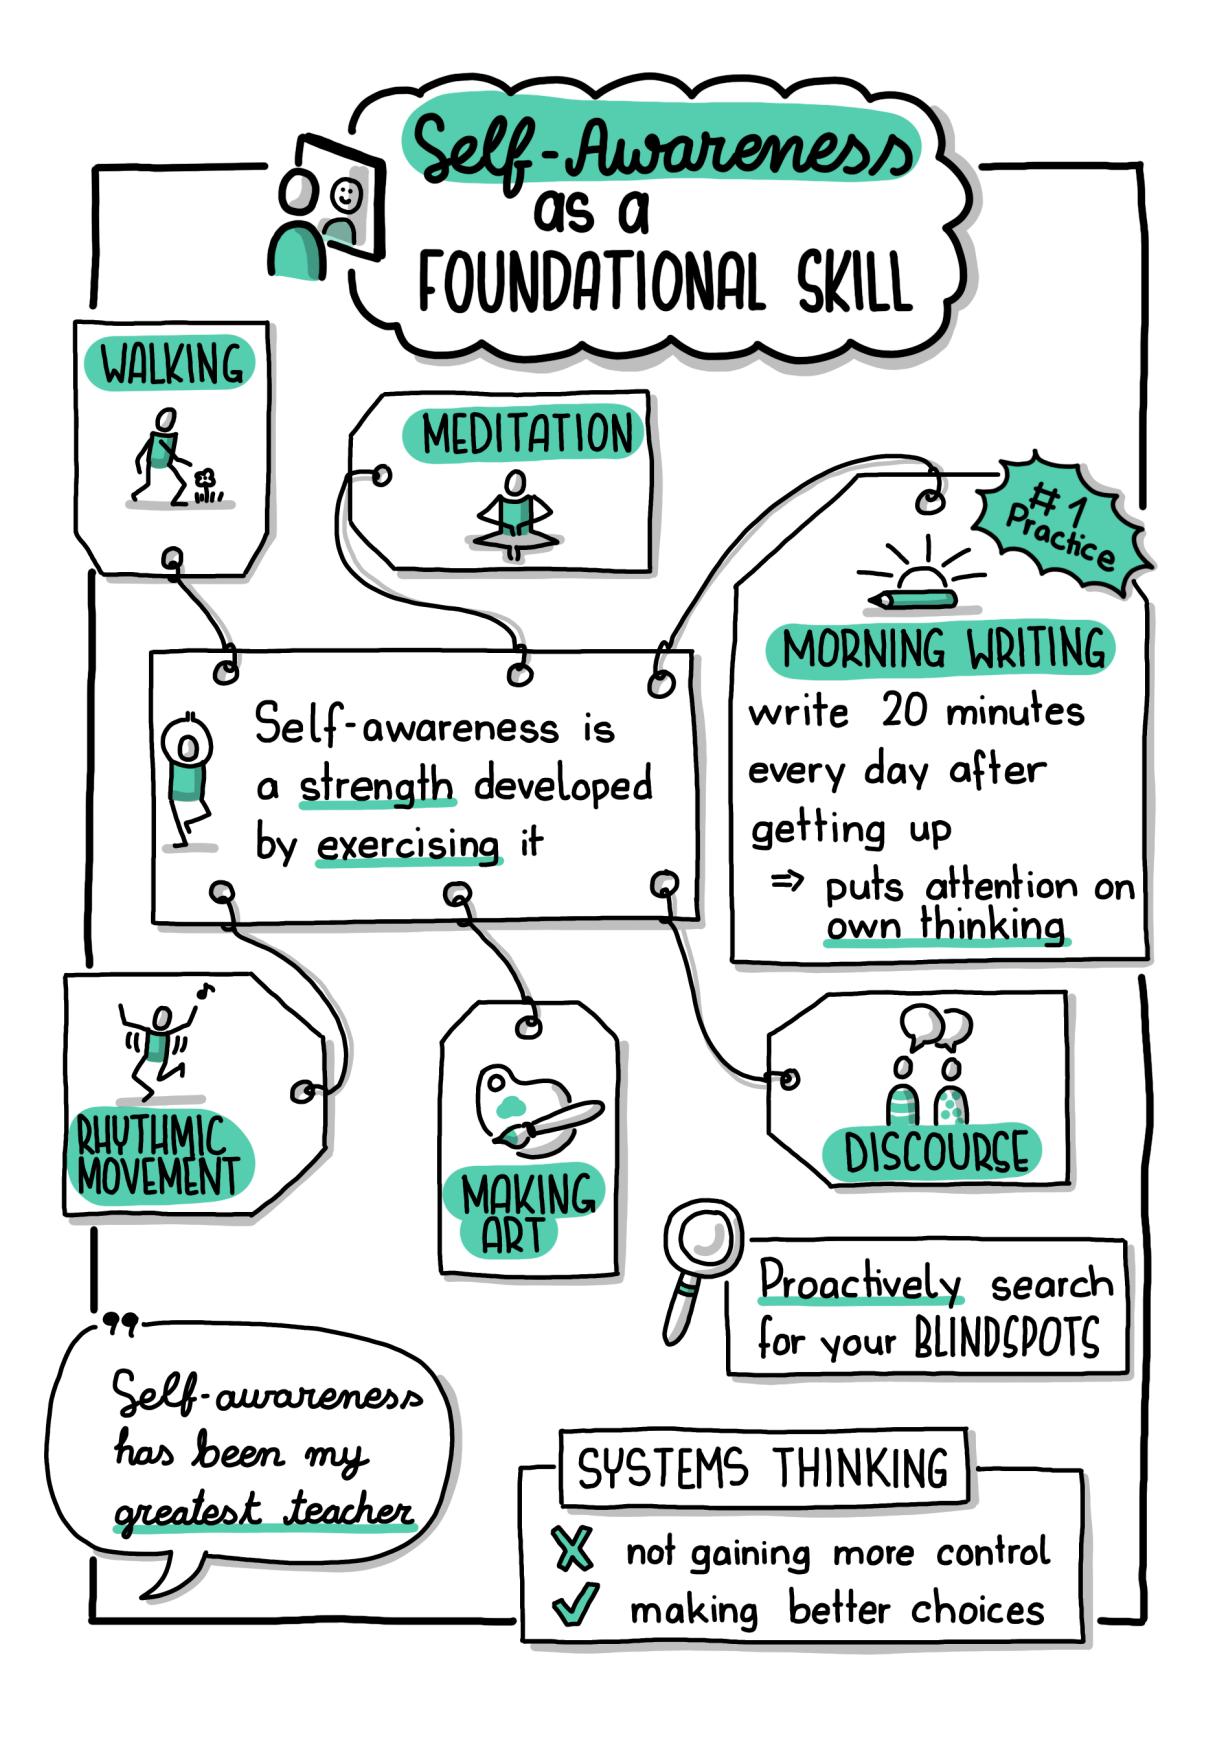 Self-Awareness
as a
FOUNDATIONAL SKILL
WALKING
MEDITATION
#1
Practice
MORNING WRITING
write 20 minutes
every day after
getting up
⇒ puts attention on
own thinking
Self-awareness is
a strength developed
by exercising it
RHYTHMIC
MOVEMENT
MAKING
ART
DISCOURSE
Proactively search
for your BLINDSPOTS
"
Self-awareness
has been my
greatest teacher
SYSTEMS THINKING
✗ not gaining more control
✓ making better choices